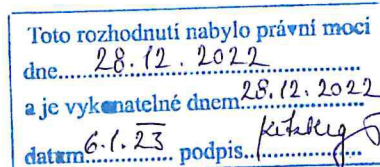 Toto rozhodnutí nabylo právní moci
dne....28.12.2022
a je vykonatelné dnem 28.12.2022
datum 6.1.23 podpis..